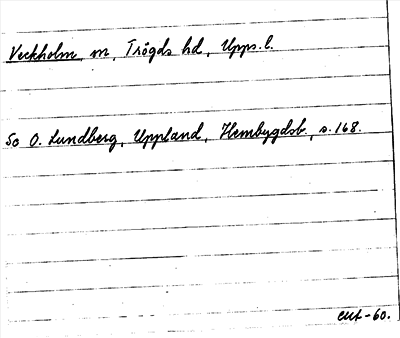 Veckholm sn, Trögds hd, Upps. l.
Se O. Lundberg, Uppland, Hembygdsb., s. 168.
-60.